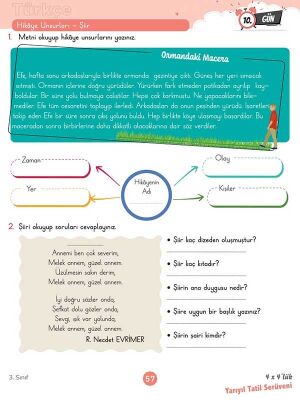 Türkçe
10. GÜN
Hikâye Unsurları - Şiir
1. Metni okuyup hikâye unsurlarını yazınız.
Ormandaki Macera
Efe, hafta sonu arkadaşlarıyla birlikte ormanda gezintiye çıktı. Güneş her yeri sımsıcak
ısıtmıştı. Ormanın içlerine doğru yürüdüler. Yürürken fark etmeden patikadan ayrılıp kay-
boldular. Bir süre yolu bulmaya çalıştılar. Hepsi çok korkmuştu. Ne yapacaklarını bile-
mediler. Efe tüm cesaretini toplayıp ilerledi. Arkadaşları da onun peşinden yürüdü. İşaretleri
takip eden Efe bir süre sonra çıkış yolunu buldu. Hep birlikte köye ulaşmayı başardılar. Bu
maceradan sonra birbirlerine daha dikkatli olacaklarına dair söz verdiler.
Zaman
Olay
Hikâyenin
Adı
Yer
Kişiler
2. Şiiri okuyup soruları cevaplayınız.
Annemi ben çok severim,
Melek annem, güzel annem.
Üzülmesin sakın derim,
Melek annem, güzel annem.
İyi doğru sözler onda,
Şefkat dolu gözler onda,
Sevgi, ışık var yolunda,
Melek annem, güzel annem.
R. Necdet EVRİMER
• Şiir kaç dizeden oluşmuştur?
• Şiir kaç kıtadır?
• Şiirin ana duygusu nedir?
• Şiire uygun bir başlık yazınız?
• Şiirin şairi kimdir?
3. Sınıf
57
4 x 4'lük
Yarıyıl Tatil Serüveni